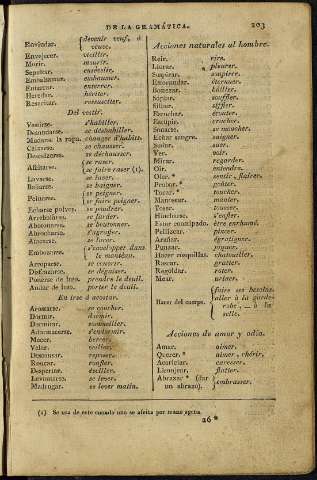 DE LA GRAMÁTICA. 203
Enviudar. devenir veuf, ó
veuve.
Envejecer. vieillir.
Morir. mourir.
Sepultar. ensévelir.
Embalsamar. embaumer.
Enterrar. enterrer.
Heredar. hériter.
Resucitar. ressusciter.
Del vestir.
Vestirse. s'habiller.
Desnudarse. se déshabiller.
Mudarse la ropa. changer d'habits.
Calzarse. se chausser.
Descalzarse. se déchausser.
Afeitarse. se raser.
se faire raser (1).
Lavarse. se laver.
Bañarse. se baigner.
Peinarse. se peigner.
se faire peigner.
Echarse polvos. se poudrer.
Arrebolarse. se farder.
Abotonarse. se boutonner.
Abrocharse. s'agraffer.
Atacarse. se lacer.
Embozarse. s'envelopper dans
le manteau.
Arroparse. se couvrir.
Disfrazarse. se déguiser.
Ponerse de luto. prendre le deuil.
Andar de luto. porter le deuil.
En irse á acostar.
Acostarse. se coucher.
Dormir. dormir.
Dormitar. sommeiller.
Adormecerse. s'endormir.
Mecer. bercer.
Velar. veiller.
Descansar. reposer.
Roncar. ronfler.
Despertar. éveiller.
Levantarse. se lever.
Madrugar. se lever matin.
Acciones naturales al hombre.
Reir. rire.
Llorar. pleurer.
Suspirar. soupirer.
Estornudar. éternuer.
Bostezar. bâiller.
Soplar. souffler.
Silbar. siffler.
Escuchar. écouter.
Escupir. cracher.
Sonarse. se moucher.
Echar sangre. saigner.
Sudar. suer.
Ver. voir.
Mirar. regarder.
Oir. entendre.
Oler. * sentir, flairer.
Probar. * goûter.
Tocar. * toucher.
Mantener. manier.
Toser. tousser.
Hincharse. s'enfler.
Estar constipado. être enrhumé.
Pellizcar. pincer.
Arañar. égratigner.
Punzar. piquer.
Hacer cosquillas. chatouiller.
Rascar. gratter.
Regoldar. roter.
Mear. uriner.
Hacer del cuerpo. faire ses besoins.
aller à la garde-
robe, à la
selle.
Acciones de amor y odio.
Amar. aimer.
Querer. * aimer, chérir.
Acariciar. caresser.
Lisonjear. flatter.
Abrazar * (dar
un abrazo). embrasser.
(1) Se usa de este cuando uno se afeita por mano agena.
26*